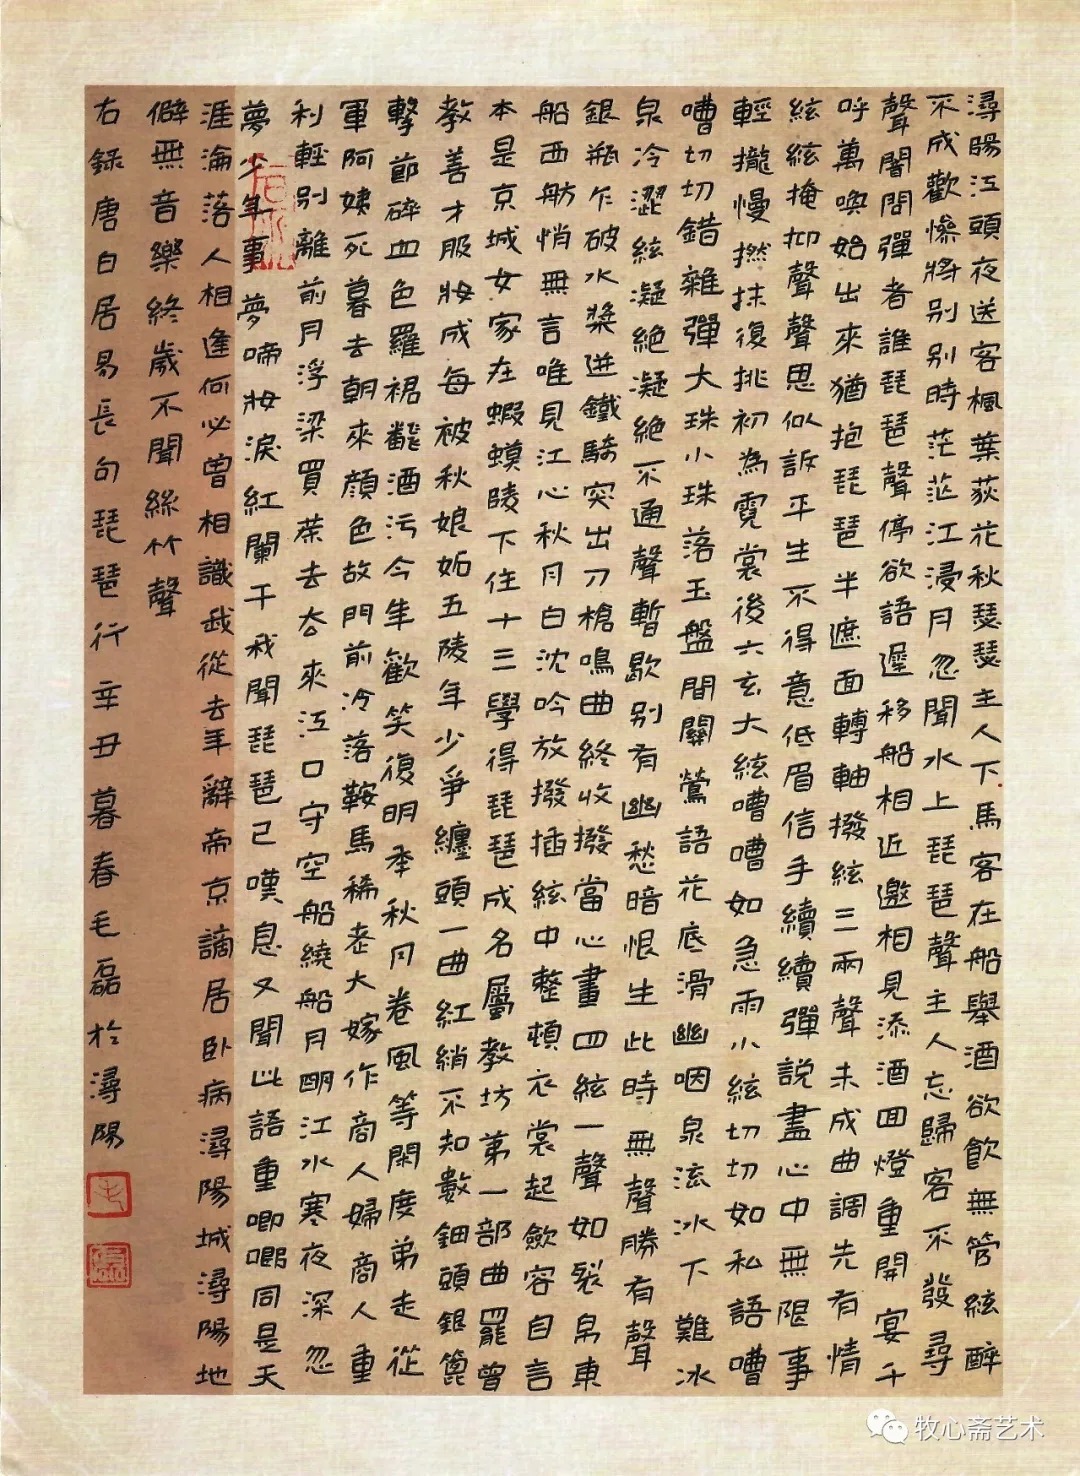 潯陽江頭夜送客楓葉荻花秋瑟瑟主人下馬客在船舉酒欲飲無管絃醉
不成歡慘將别别時茫茫江浸月忽聞水上琵琶聲主人忘歸客不發尋
聲闇問彈者誰琵琶聲停欲語遲移船相近邀相見添酒回燈重開宴千
呼萬喚始出來猶抱琵琶半遮面轉軸撥絃三兩聲未成曲調先有情
絃絃掩抑聲聲思似訴平生不得意低眉信手續續彈說盡心中無限事
輕攏慢撚抹復挑初為霓裳後六玄大絃嘈嘈如急雨小絃切切如私語嘈
嘈切切錯雜彈大珠小珠落玉盤間關鶯語花底滑幽咽泉流冰下難冰
泉冷澀絃凝絕凝絕不通聲暫歇别有幽愁暗恨生此時無聲勝有聲
銀瓶乍破水漿迸鐵騎突出刀槍鳴曲終收撥當心畫四絃一聲如裂帛東
船西舫悄無言唯見江心秋月白沈吟放撥插絃中整頓衣裳起斂容自言
本是京城女家在蝦蟆陵下住十三學得琵琶成名屬教坊第一部曲罷曾
教善才服妝成每被秋娘妬五陵年少爭纏頭一曲紅綃不知數鈿頭銀篦
擊節碎血色羅裙翻酒污今年歡笑復明年秋月春風等閑度弟走從
軍阿姨死暮去朝來顏色故門前冷落鞍馬稀老大嫁作商人婦商人重
利輕别離前月浮梁買茶去去來江口守空船繞船月明江水寒夜深忽
夢少年事夢啼妝淚紅闌干我聞琵琶已嘆息又聞此語重唧唧同是天
涯淪落人相逢何必曾相識我從去年辭帝京謫居卧病潯陽城潯陽地
僻無音樂終歲不聞絲竹聲
右錄唐白居易長句琵琶行辛丑暮春毛磊於潯陽
牧心斋艺术